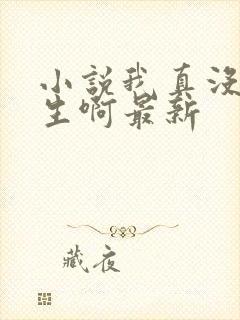 小説我真没
生啊最新
藏夜